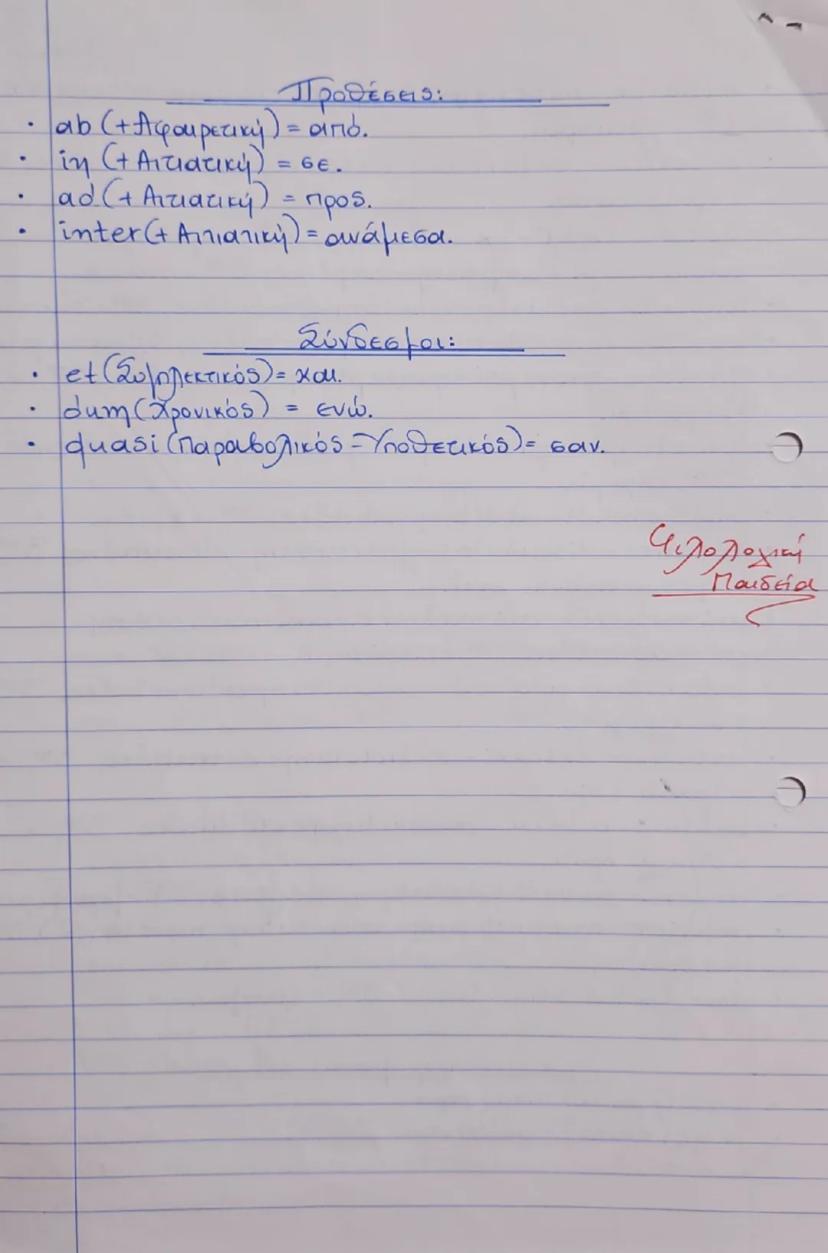 Προθέσεις:
• ab (+Αφαιρετική) = από.
• in (+ Αιτιατική) = σε.
• ad (+ Αιτιατική) = προς.
• inter (+ Αιτιατική) = ανάμεσα.
Σύνδεσμοι:
• et (Συμπλεκτικός) = και.
• dum (Χρονικός) = ενώ.
• quasi (Παραβολικός - Υποθετικός) = σαν.
Φιλολογική
Παιδεία